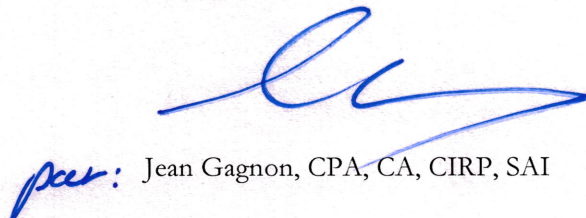 par: Jean Gagnon, CPA, CA, CIRP, SAI